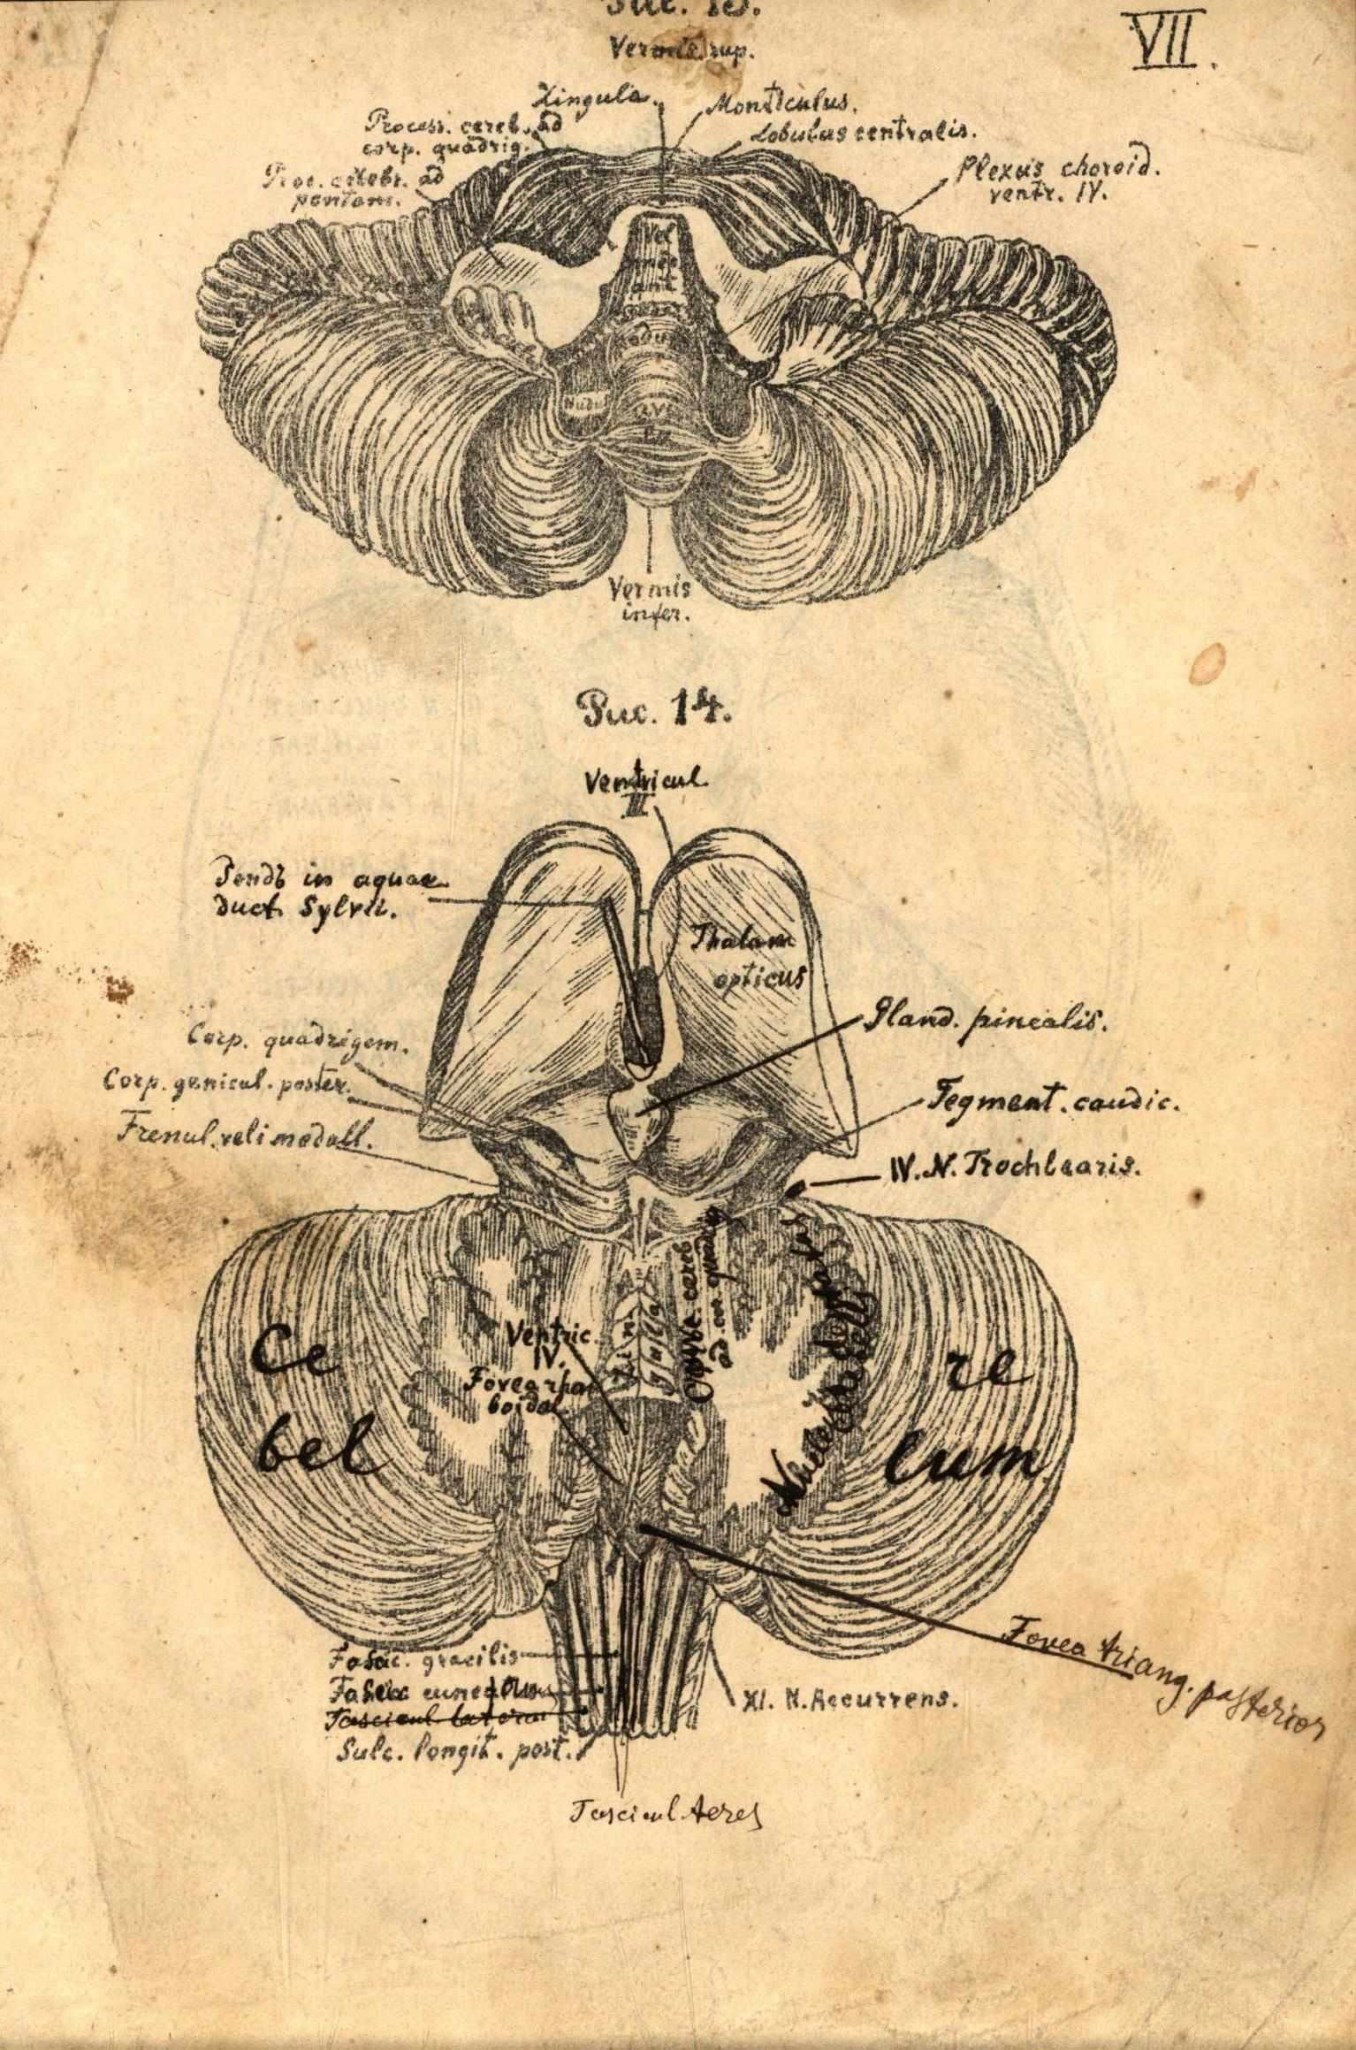 Рис. 13.
VII.
Vermis sup.
Lingula.
Monticulus.
Process. cereb. ad
corp. quadrig.
Lobulus centralis.
Proc. cerebr. ad
pontem.
Plexus choroid.
ventr. IV.
Vel
Nodul
Vermis
infer.
Рис. 14.
Ventricul
III
Зондъ in aquae
duct. Sylvii.
Thalam
opticus
Gland. pinealis.
Corp. quadrigem.
Corp. genicul. poster.
Tegment. caudic.
Frenul. veli medull.
IV. N. Trochlearis.
ad cor. quadrig
Ventric.
IV.
Fovea rhom
boidal
Lingula
Ce re
bel lum
Fovea triang. posterior
Fasc. gracilis
Fascic cuneatus
Fascicul lateral
Sulc. longit. post.
XI. N. Accurrens.
Fascicul. teres